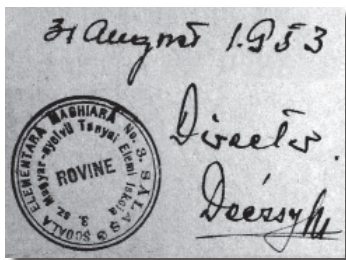 31 August 1953
Director
Deézsy M
ȘCOALA ELEMENTARĂ MAGHIARĂ No. 3. SĂLAȘ
3. sz. Magyar-nyelvü Tanyai Elemi Iskola
ROVINE